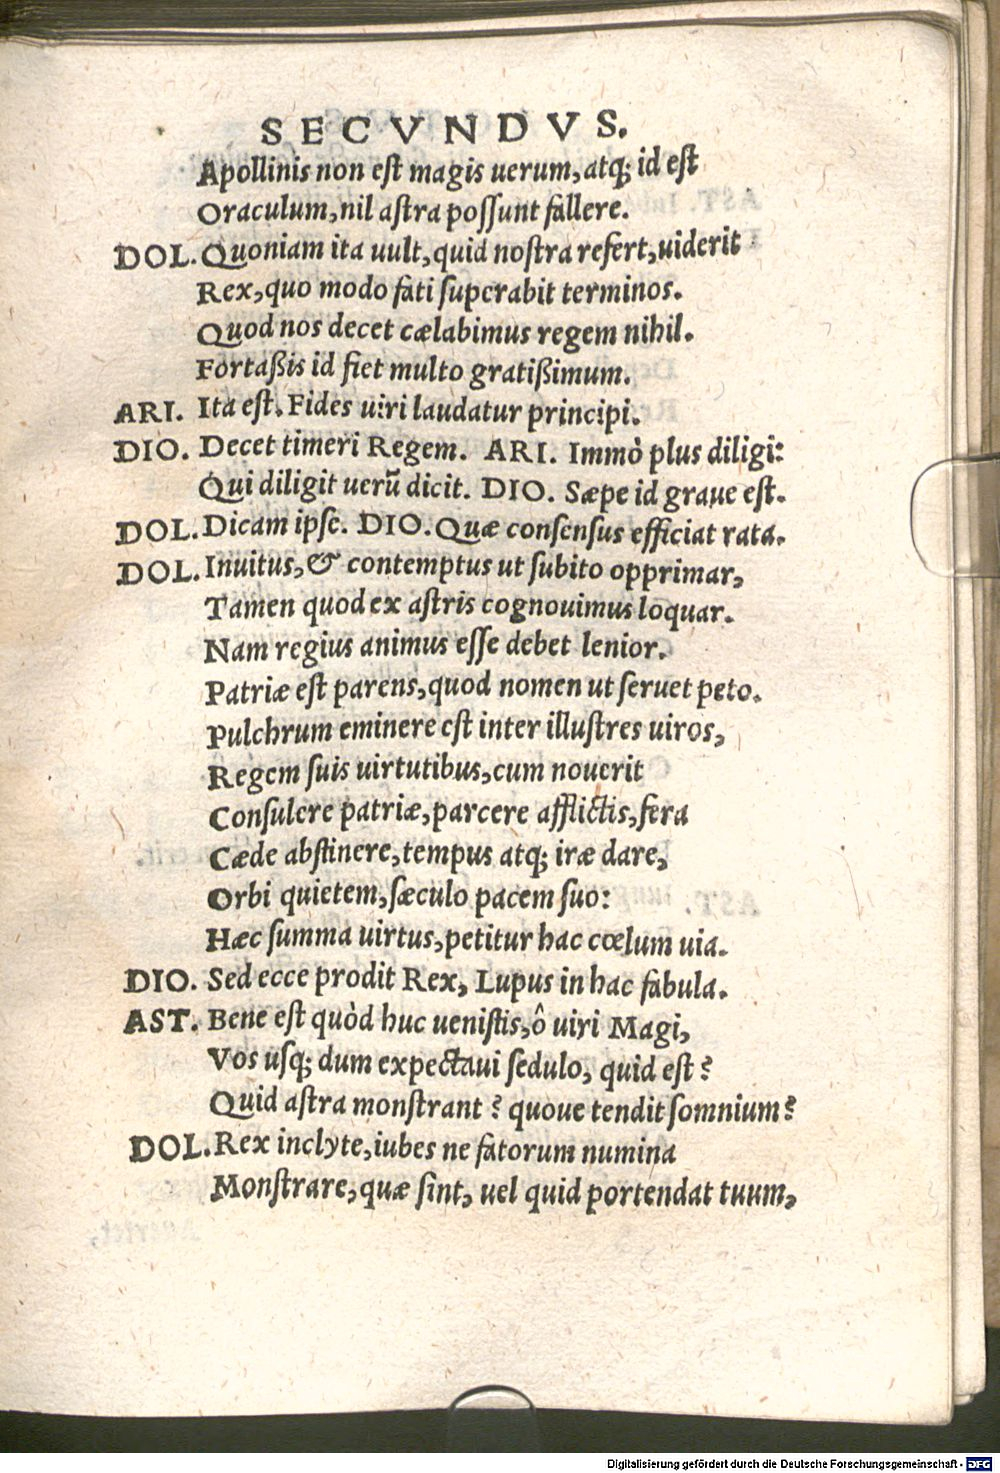 SECVNDVS.
Apollinis non est magis uerum, atq; id est
Oraculum, nil astra possunt fallere.
DOL. Quoniam ita uult, quid nostra refert, uiderit
Rex, quo modo fati superabit terminos.
Quod nos decet cælabimus regem nihil.
Fortaßis id fiet multo gratißimum.
ARI. Ita est. Fides uiri laudatur principi.
DIO. Decet timeri Regem. ARI. Immò plus diligi:
Qui diligit uerũ dicit. DIO. Sæpe id graue est.
DOL. Dicam ipse. DIO. Quæ consensus efficiat rata.
DOL. Inuitus, & contemptus ut subito opprimar,
Tamen quod ex astris cognouimus loquar.
Nam regius animus esse debet lenior.
Patriæ est parens, quod nomen ut seruet peto.
Pulchrum eminere est inter illustres uiros,
Regem suis uirtutibus, cum nouerit
Consulere patriæ, parcere afflictis, fera
Cæde abstinere, tempus atq; iræ dare,
Orbi quietem, sæculo pacem suo:
Hæc summa uirtus, petitur hac cœlum uia.
DIO. Sed ecce prodit Rex, Lupus in hac fabula.
AST. Bene est quòd huc uenistis, ô uiri Magi,
Vos usq; dum expectaui sedulo, quid est?
Quid astra monstrant? quoue tendit somnium?
DOL. Rex inclyte, iubes ne fatorum numina
Monstrare, quæ sint, uel quid portendat tuum,
Digitalisierung gefördert durch die Deutsche Forschungsgemeinschaft - DFG